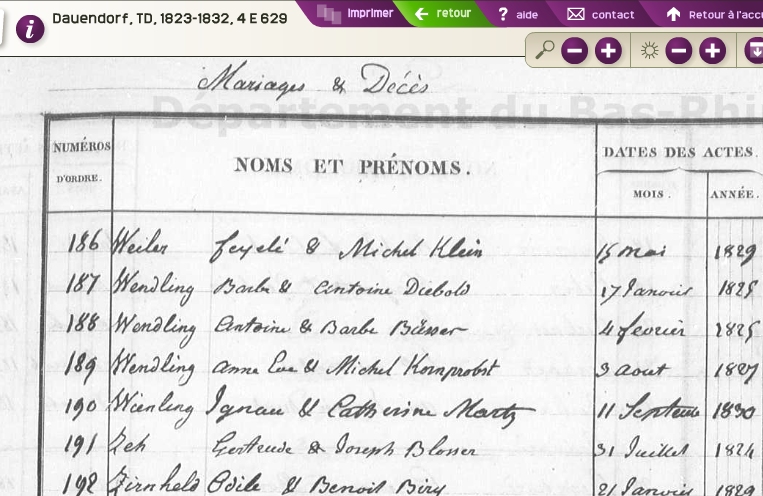 Dauendorf, TD, 1823-1832, 4 E 629
imprimer
retour
aide
contact
Retour à l'accu
Mariages & Décès
Département du Bas-Rhi
NUMÉROS D'ORDRE.
NOMS ET PRÉNOMS.
DATES DES ACTES.
MOIS.
ANNÉE.
186 Weiler & Michel Klein 15 mai 1829
187 Wendling Barbe & Antoine Diebold 17 Janvier 1825
188 Wendling Antoine & Barbe 4 fevrier 1825
189 Wendling anne Eve & Michel Kornprobst 3 aout 1827
190 Ignace & Catherine Martz 11 Septembre 1830
191 Zeh Gertrude & Joseph Blosser 31 Juillet 1824
192 Zirnheld Odile & Benoit Biry 21 Janvier 1829